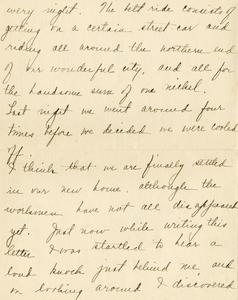 every night. The belt ride consists of
getting on a certain street car and
riding all around the northern end
of our wonderful city, and all for
the handsome sum of one nickel.
Last night we went around four
times before we decided we were cooled
I think that we are finally settled
in our new home, although the
workmen have not all disappeared
yet. Just now while writing this
letter I was startled to hear a
loud knock just behind me, and
on looking around I discovered